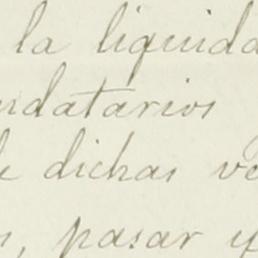 la liquida
ndatarios
de dichas ve
s, pasar y